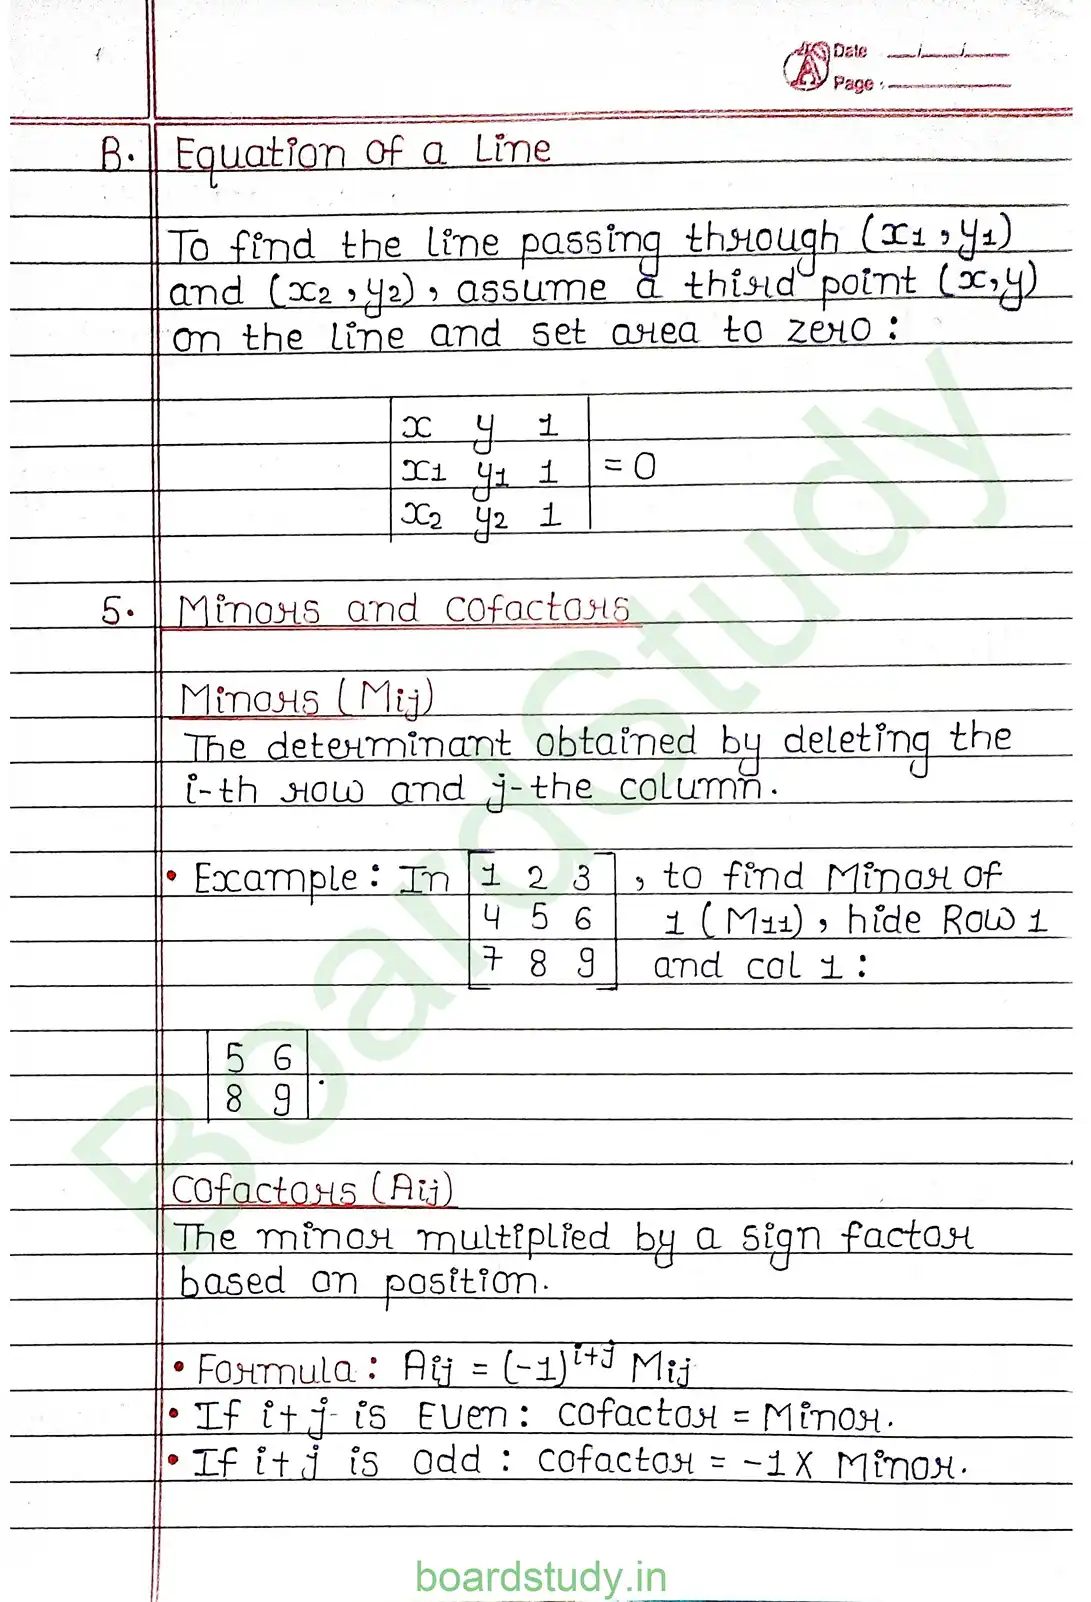 Date
Page :
B. Equation of a Line
To find the line passing through (x1, y1)
and (x2, y2), assume a third point (x, y)
on the line and set area to zero :
x y 1
x1 y1 1 = 0
x2 y2 1
5. Minors and cofactors
Minors (Mij)
The determinant obtained by deleting the
i-th row and j-the column.
• Example : In 1 2 3 , to find Minor of
4 5 6 1 (M11), hide Row 1
7 8 9 and col 1 :
5 6
8 9 .
Cofactors (Aij)
The minor multiplied by a sign factor
based on position.
• Formula : Aij = (-1)^i+j Mij
• If i+j is Even : cofactor = Minor.
• If i+j is odd : cofactor = -1 X Minor.
BoardStudy
boardstudy.in